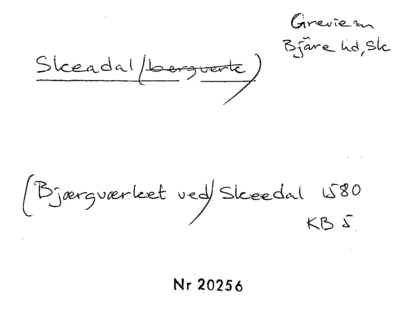 Grevie sn
Bjäre hd, Sk
Skeadal (bergverk)
(Bjærgværket ved) Skeedal 1580
KB 5.
Nr 20256